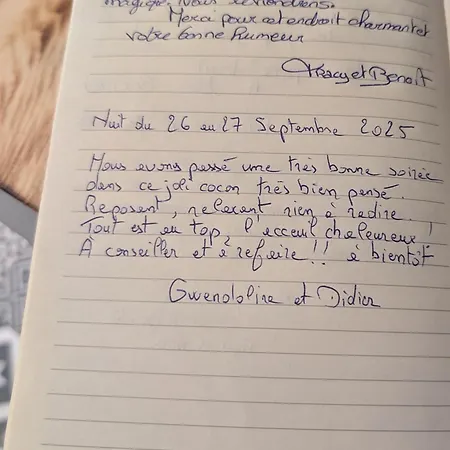 magique. Nous reviendrons.
Merci pour cet endroit charmant et
votre bonne humeur
Tracy et Benoît
Nuit du 26 au 27 Septembre 2025
Nous avons passé une très bonne soirée
dans ce joli cocon très bien pensé.
Reposant, relaxant rien à redire.
Tout est au top, l'acceuil chaleureux !
À conseiller et à refaire !! à bientôt
Gwendoline et Didier